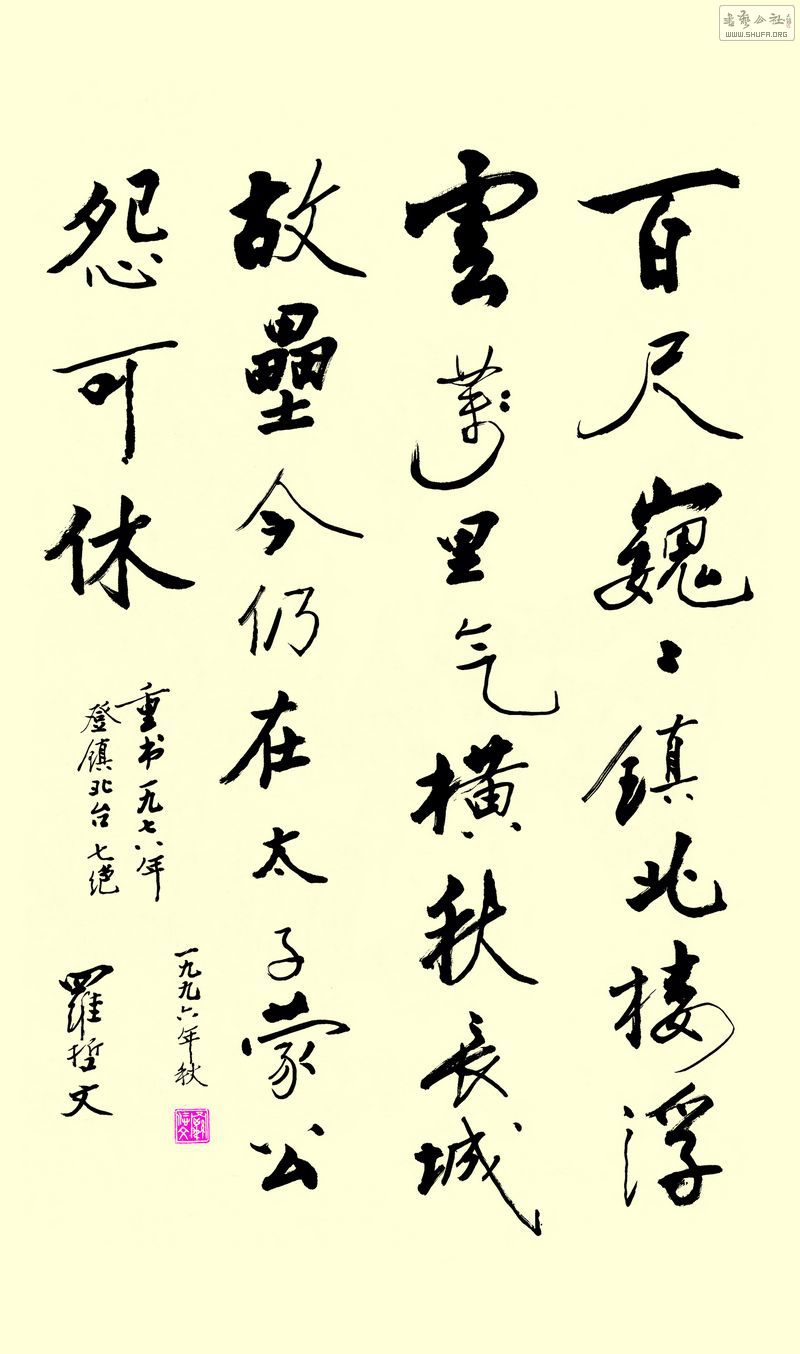 百尺巍〻鎮北楼浮
雲萬里气横秋長城
故壘今仍在太子蒙公
怨可休
重书一九七八年
登鎮北台七绝
一九九六年秋
羅哲文
書藝公社
WWW.SHUFA.ORG